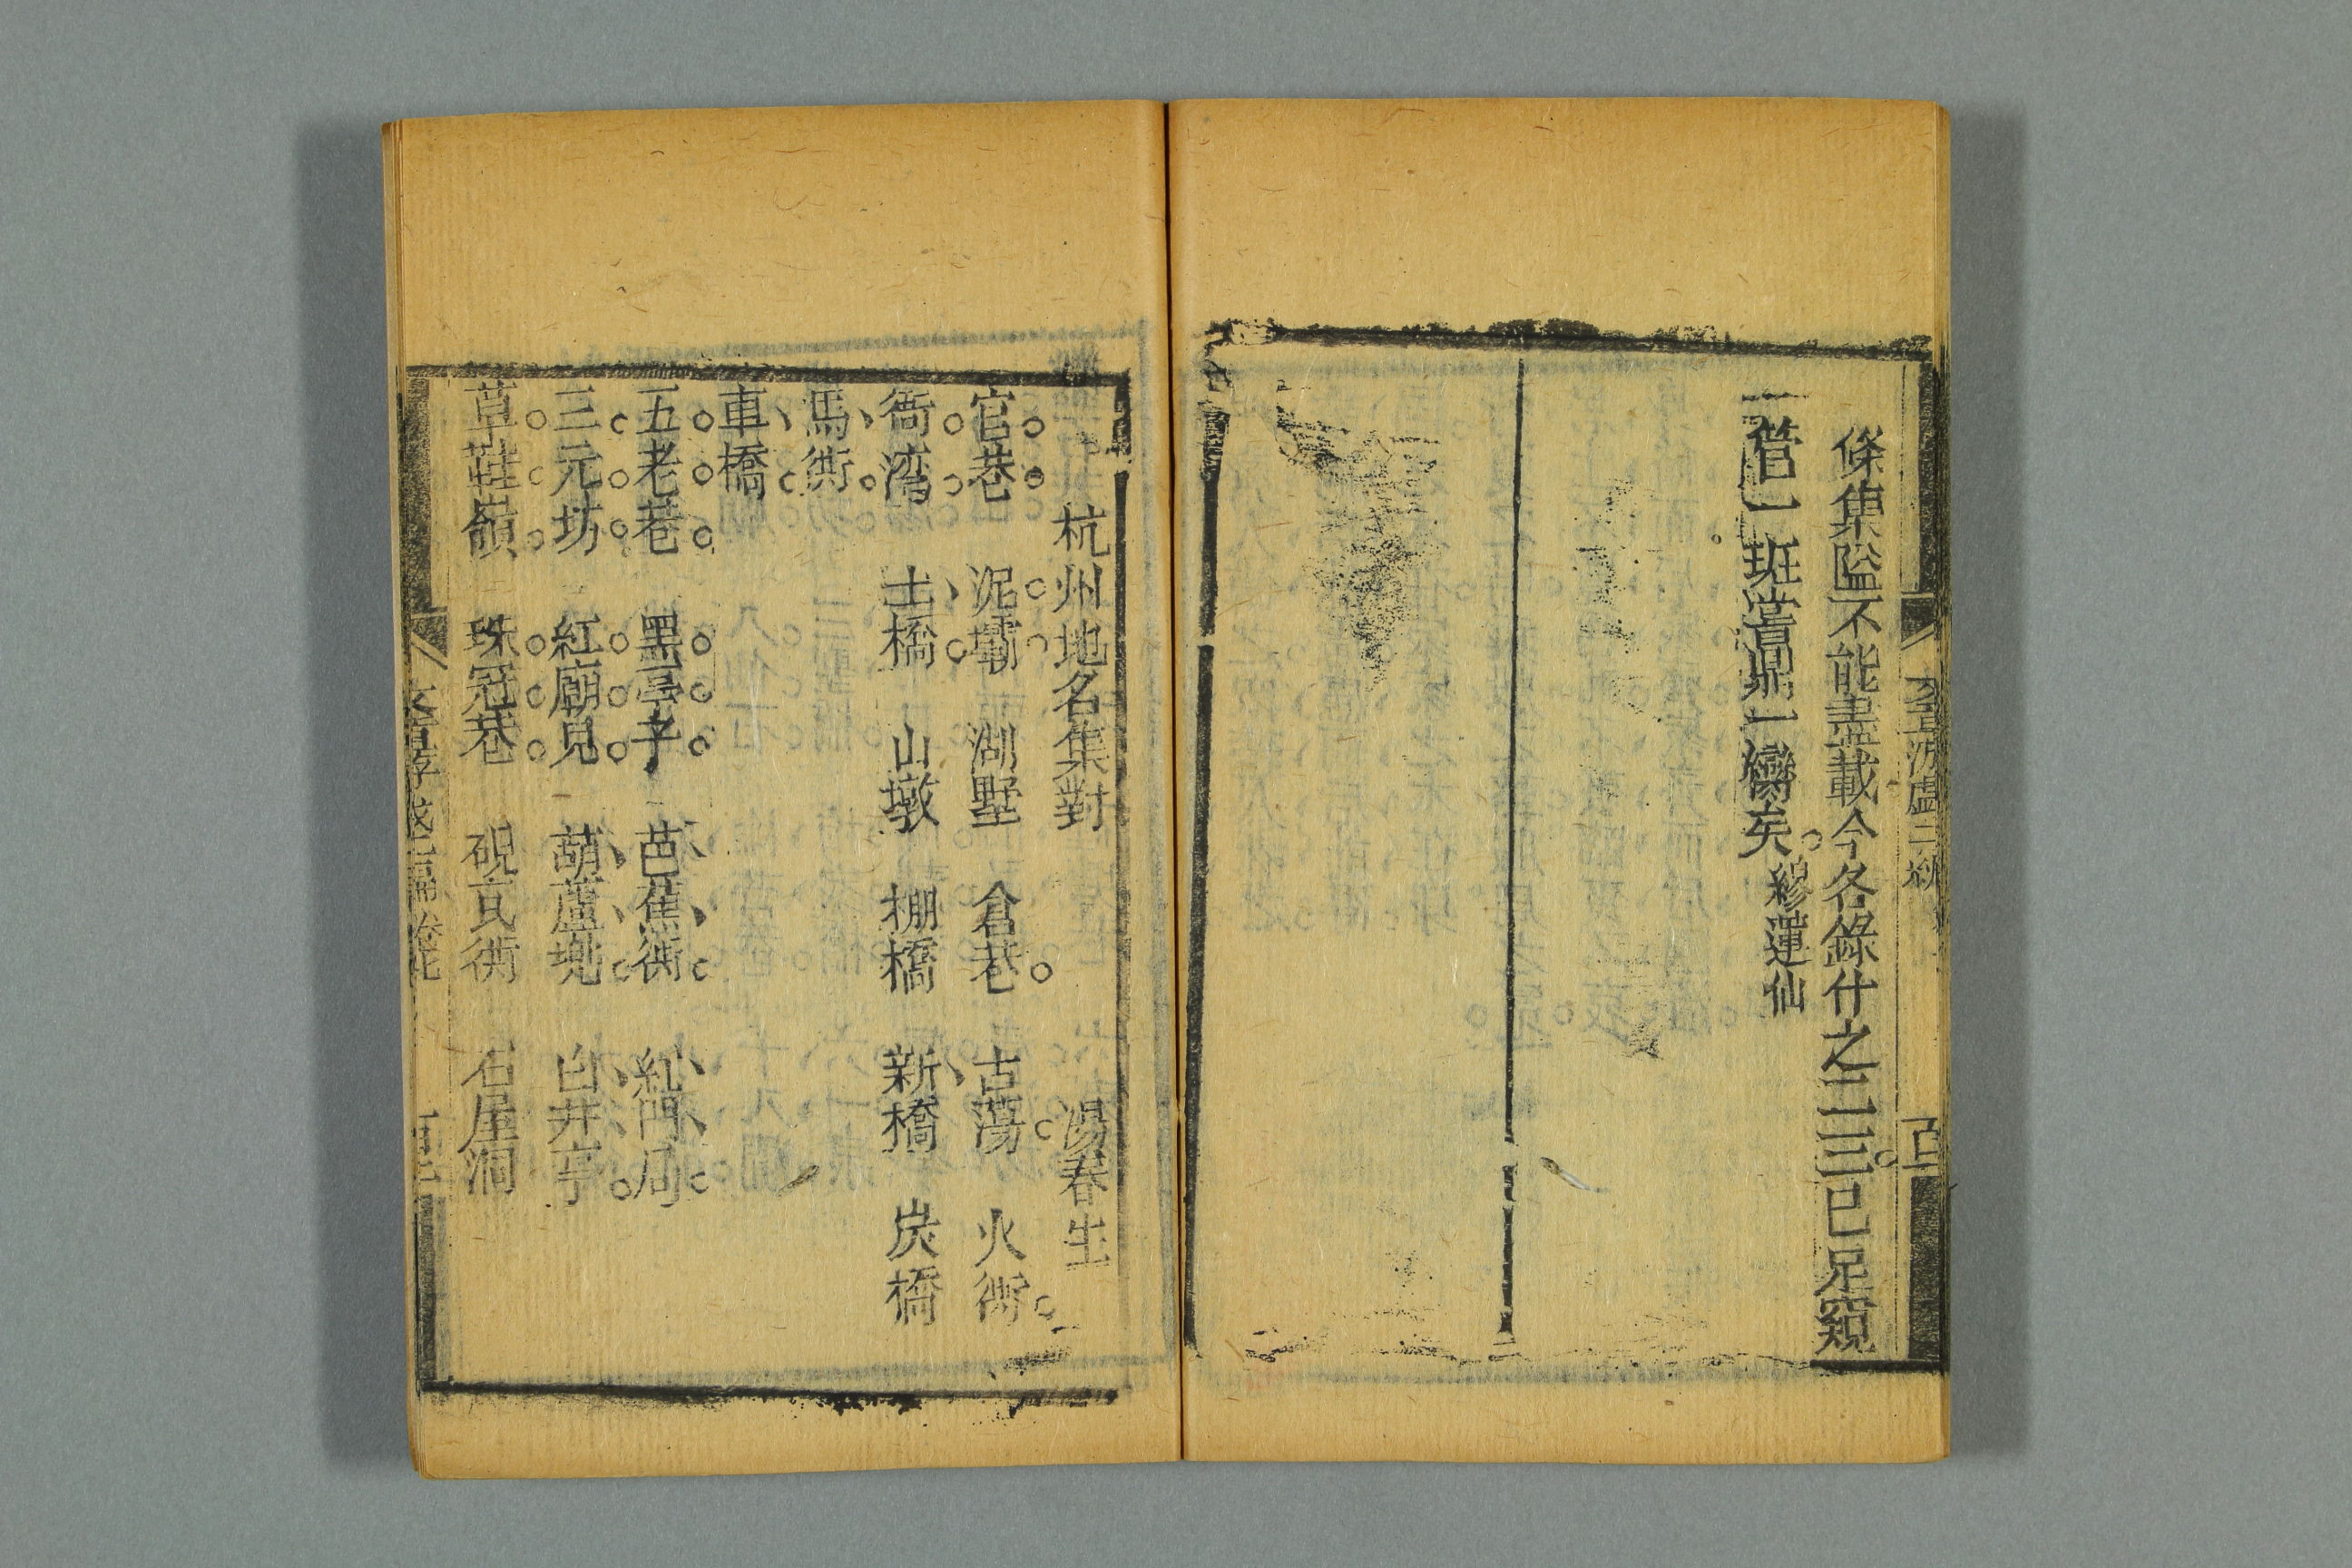 條集隘不能盡載今各錄什之二三已足窺
一管一斑嘗鼎一臠矣 繆蓮仙
杭州地名集對 湯春生
官巷 泥壩 湖墅 倉巷 古蕩 火衖
衙湾 土橋 山墩 棚橋 新橋 炭橋
馬衖
車橋
五老巷 黑亭子 芭蕉衖 紅門局
三元坊 紅廟見 葫蘆兜 白井亭
草鞋嶺 珠冠巷 硯瓦衖 石屋洞
文章游戲二編 卷七